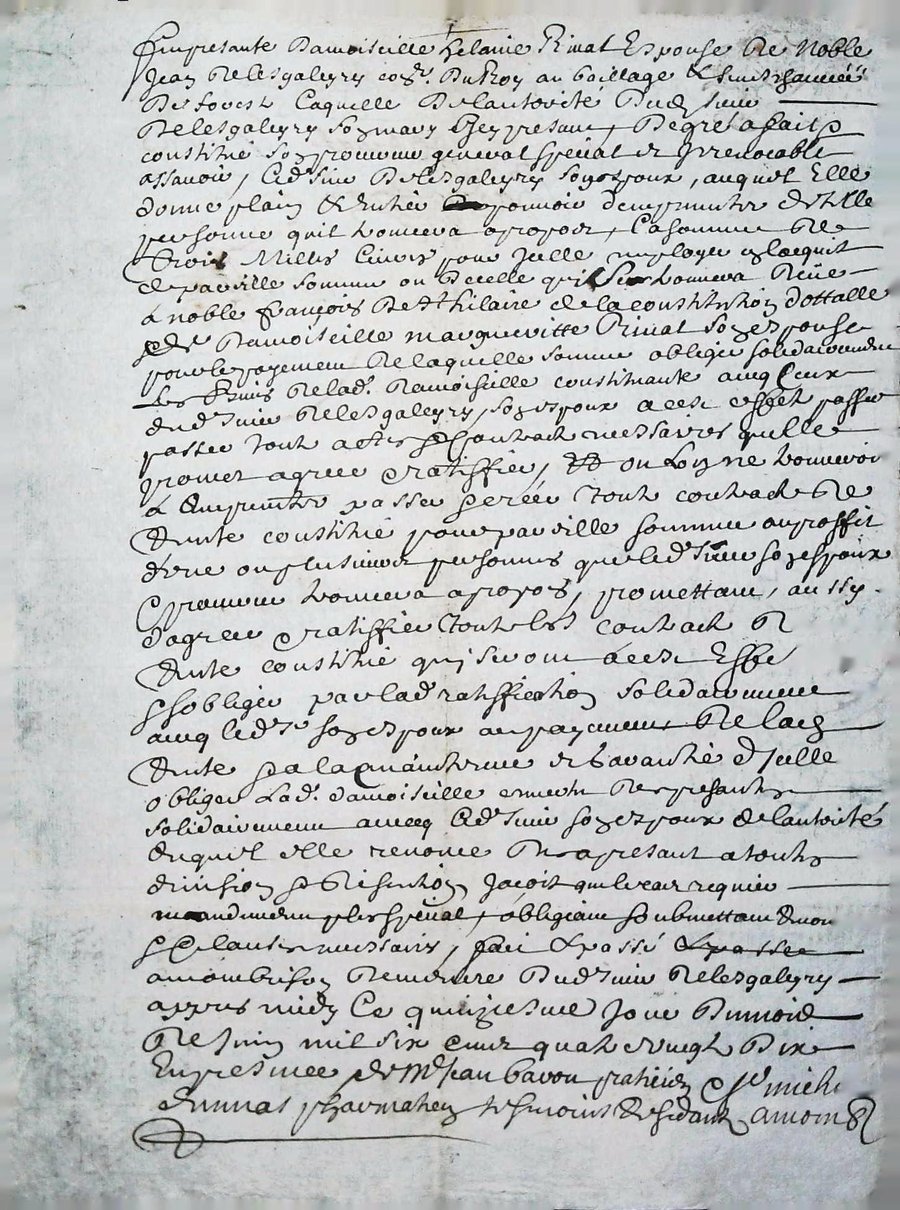 presante Damoiselle helaine Rival Espouse de Noble
Jean Delesgalleyry con.er Du Roy au bailliage &
De forest Laquelle De lautorité Dud. sieur
Delesgallery son mary Icy presant, De gré a fait &
constitué son procureur general special et Irrevocable
assavoir, led. sieur Delesgallery son espoux, auquel Elle
donne plain & Entier pouvoir d'emprunter de telle
personne quil trouvera apropos, La somme De
Trois Milles Livres pour Icelle employer a lacquit
de pareille somme ou De celle quil se trouvera Deüe
a noble françois De St hilaire de la constitution dottalle
de Damoiselle margueritte Rival son espouse
pour le payement De laquelle somme obliger solidairement
les biens De lad. Damoiselle constituante avecq ceux
dud. sieur Delesgallery son espoux a cest effect passer
passer tout actes & contract necessaires quelle
promet agreer & ratiffier, ou Lon ne trouveroit
a Emprunter passer & creer tout contract De
Rente constitué pour pareille somme au proffit
d'une ou plusieurs personnes que led. sieur son espoux
& procureur trouvera apropos, promettant, aussy
d'agreer & ratiffier tout les contract De
Rente constitué qui seront a cest Effe
& sobliger par lad. ratiffication solidairement
avecq led. sr son espoux au payement De lad.
Rente & a la maintenue et garantie d'Icelle
obliger Lad. damoiselle comme Des presants
solidairement avecq led. sieur son espoux De lautorité
duquel elle renonce Des apresant a toutes
division & Discution Jaçoit que le cas requier
mandement plus special, obligeant soubmettant Renon
& Clauses necessaires, fait & passé & passee
a Montbrison Demeure Dud. sieur Delesgallery
appres midy Ce quinziesme Jour Du mois
De Juin mil six cent quatre vingt Dix
En presence de Me Jean bavou praticien & sr michel
dumas pharmatien tesmoins Residant a mont